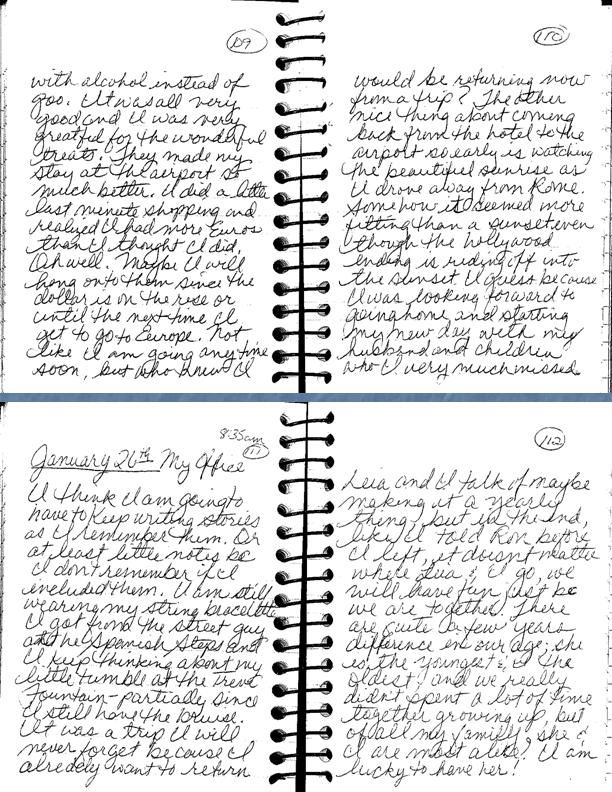 109
with alcohol instead of
goo. It was all very
good and I was very
greatful for the wonderful
treats. They made my
stay at the airport so
much better. I did a little
last minute shopping and
realized I had more Euros
than I thought I did.
Oh well. Maybe I will
hang onto them since the
dollar is on the rise or
until the next time I
get to go to Europe. Not
like I am going any time
soon, but who knew I
110
would be returning now
from a trip? The other
nice thing about coming
back from the hotel to the
airport so early is watching
the beautiful sunrise as
I drove away from Rome.
Somehow it seemed more
fitting than a sunset even
though the Hollywood
ending is riding off into
the sunset. I guess because
I was looking forward to
going home and starting
my new day with my
husband and children
who I very much missed.
8:35am
111
January 26th My Office
I think I am going to
have to keep writing stories
as I remember them. Or
at least little notes bc
I don't remember if I
included them. I am still
wearing my string bracelette
I got from the street guy
at the Spanish Steps and
I keep thinking about my
little tumble at the Trevi
Fountain - partially since
I still have the bruise.
It was a trip I will
never forget because I
already want to return
112
Leia and I talk of maybe
making it a yearly
thing, but in the end,
like I told Ron before
I left, it doesnt matter
where Leia & I go, we
will have fun just bc
we are together. There
are quite a few years
difference in our age; she
is the youngest & I the
oldest, and we really
didn't spent a lot of time
together growing up, but
of all my family, she &
I are most alike? I am
lucky to have her!